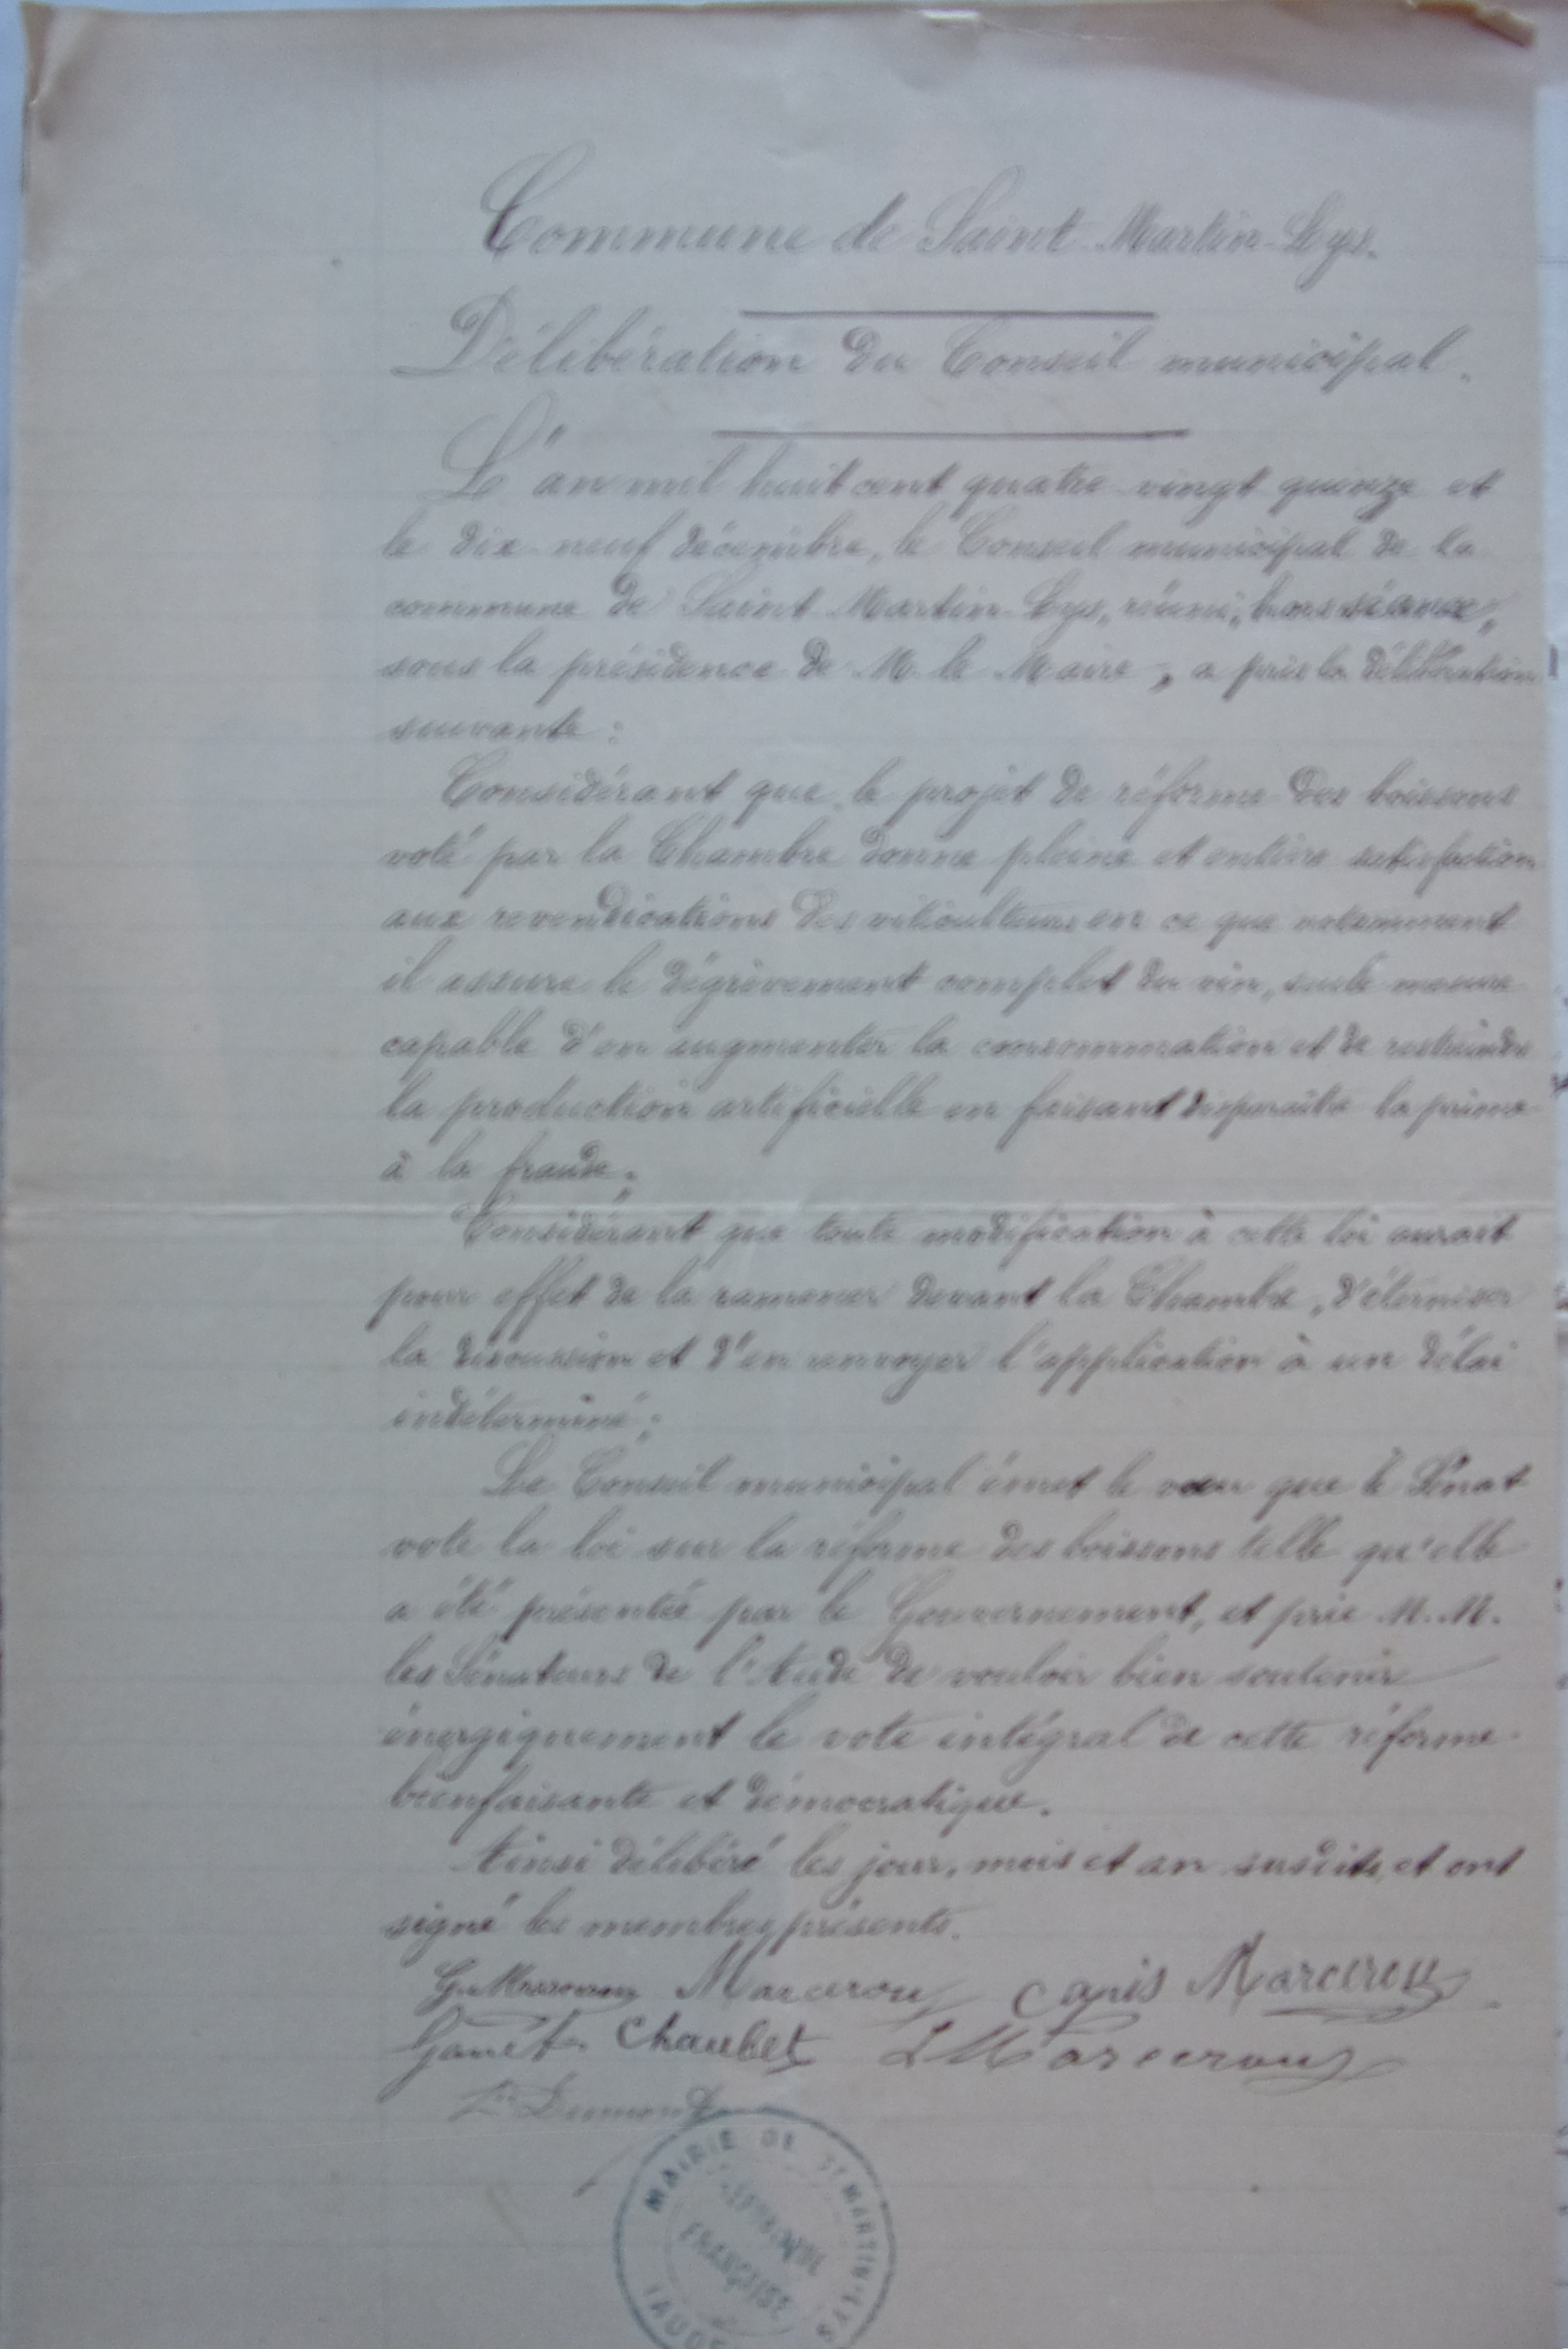 Commune de Saint Martin-Lys.
Délibération du Conseil municipal.
L'an mil huit cent quatre vingt quinze et
le dix neuf décembre, le Conseil municipal de la
commune de Saint Martin-Lys, réuni, hors séance,
sous la présidence de M. le Maire, a pris la délibération
suivante :
Considérant que le projet de réforme des boissons
voté par la Chambre donne pleine et entière satisfaction
aux revendications des viticulteurs en ce que notamment
il assure le dégrèvement complet du vin, seule mesure
capable d'en augmenter la consommation et de restreindre
la production artificielle en faisant disparaître la prime
à la fraude ;
Considérant que toute modification à cette loi aurait
pour effet de la ramener devant la Chambre, d'éterniser
la discussion et d'en envoyer l'application à un délai
indéterminé ;
Le Conseil municipal émet le vœu que le Sénat
vote la loi sur la réforme des boissons telle qu'elle
a été présentée par le Gouvernement, et prie M.M.
les Sénateurs de l'Aude de vouloir bien soutenir
énergiquement le vote intégral de cette réforme
bienfaisante et démocratique.
Ainsi délibéré les jour, mois et an susdits, et ont
signé les membres présents.
Marcerou Capis Marcerou
Chaubet L Marcerou
MAIRIE DE ST MARTIN-LYS
RÉPUBLIQUE
FRANÇAISE
(AUDE